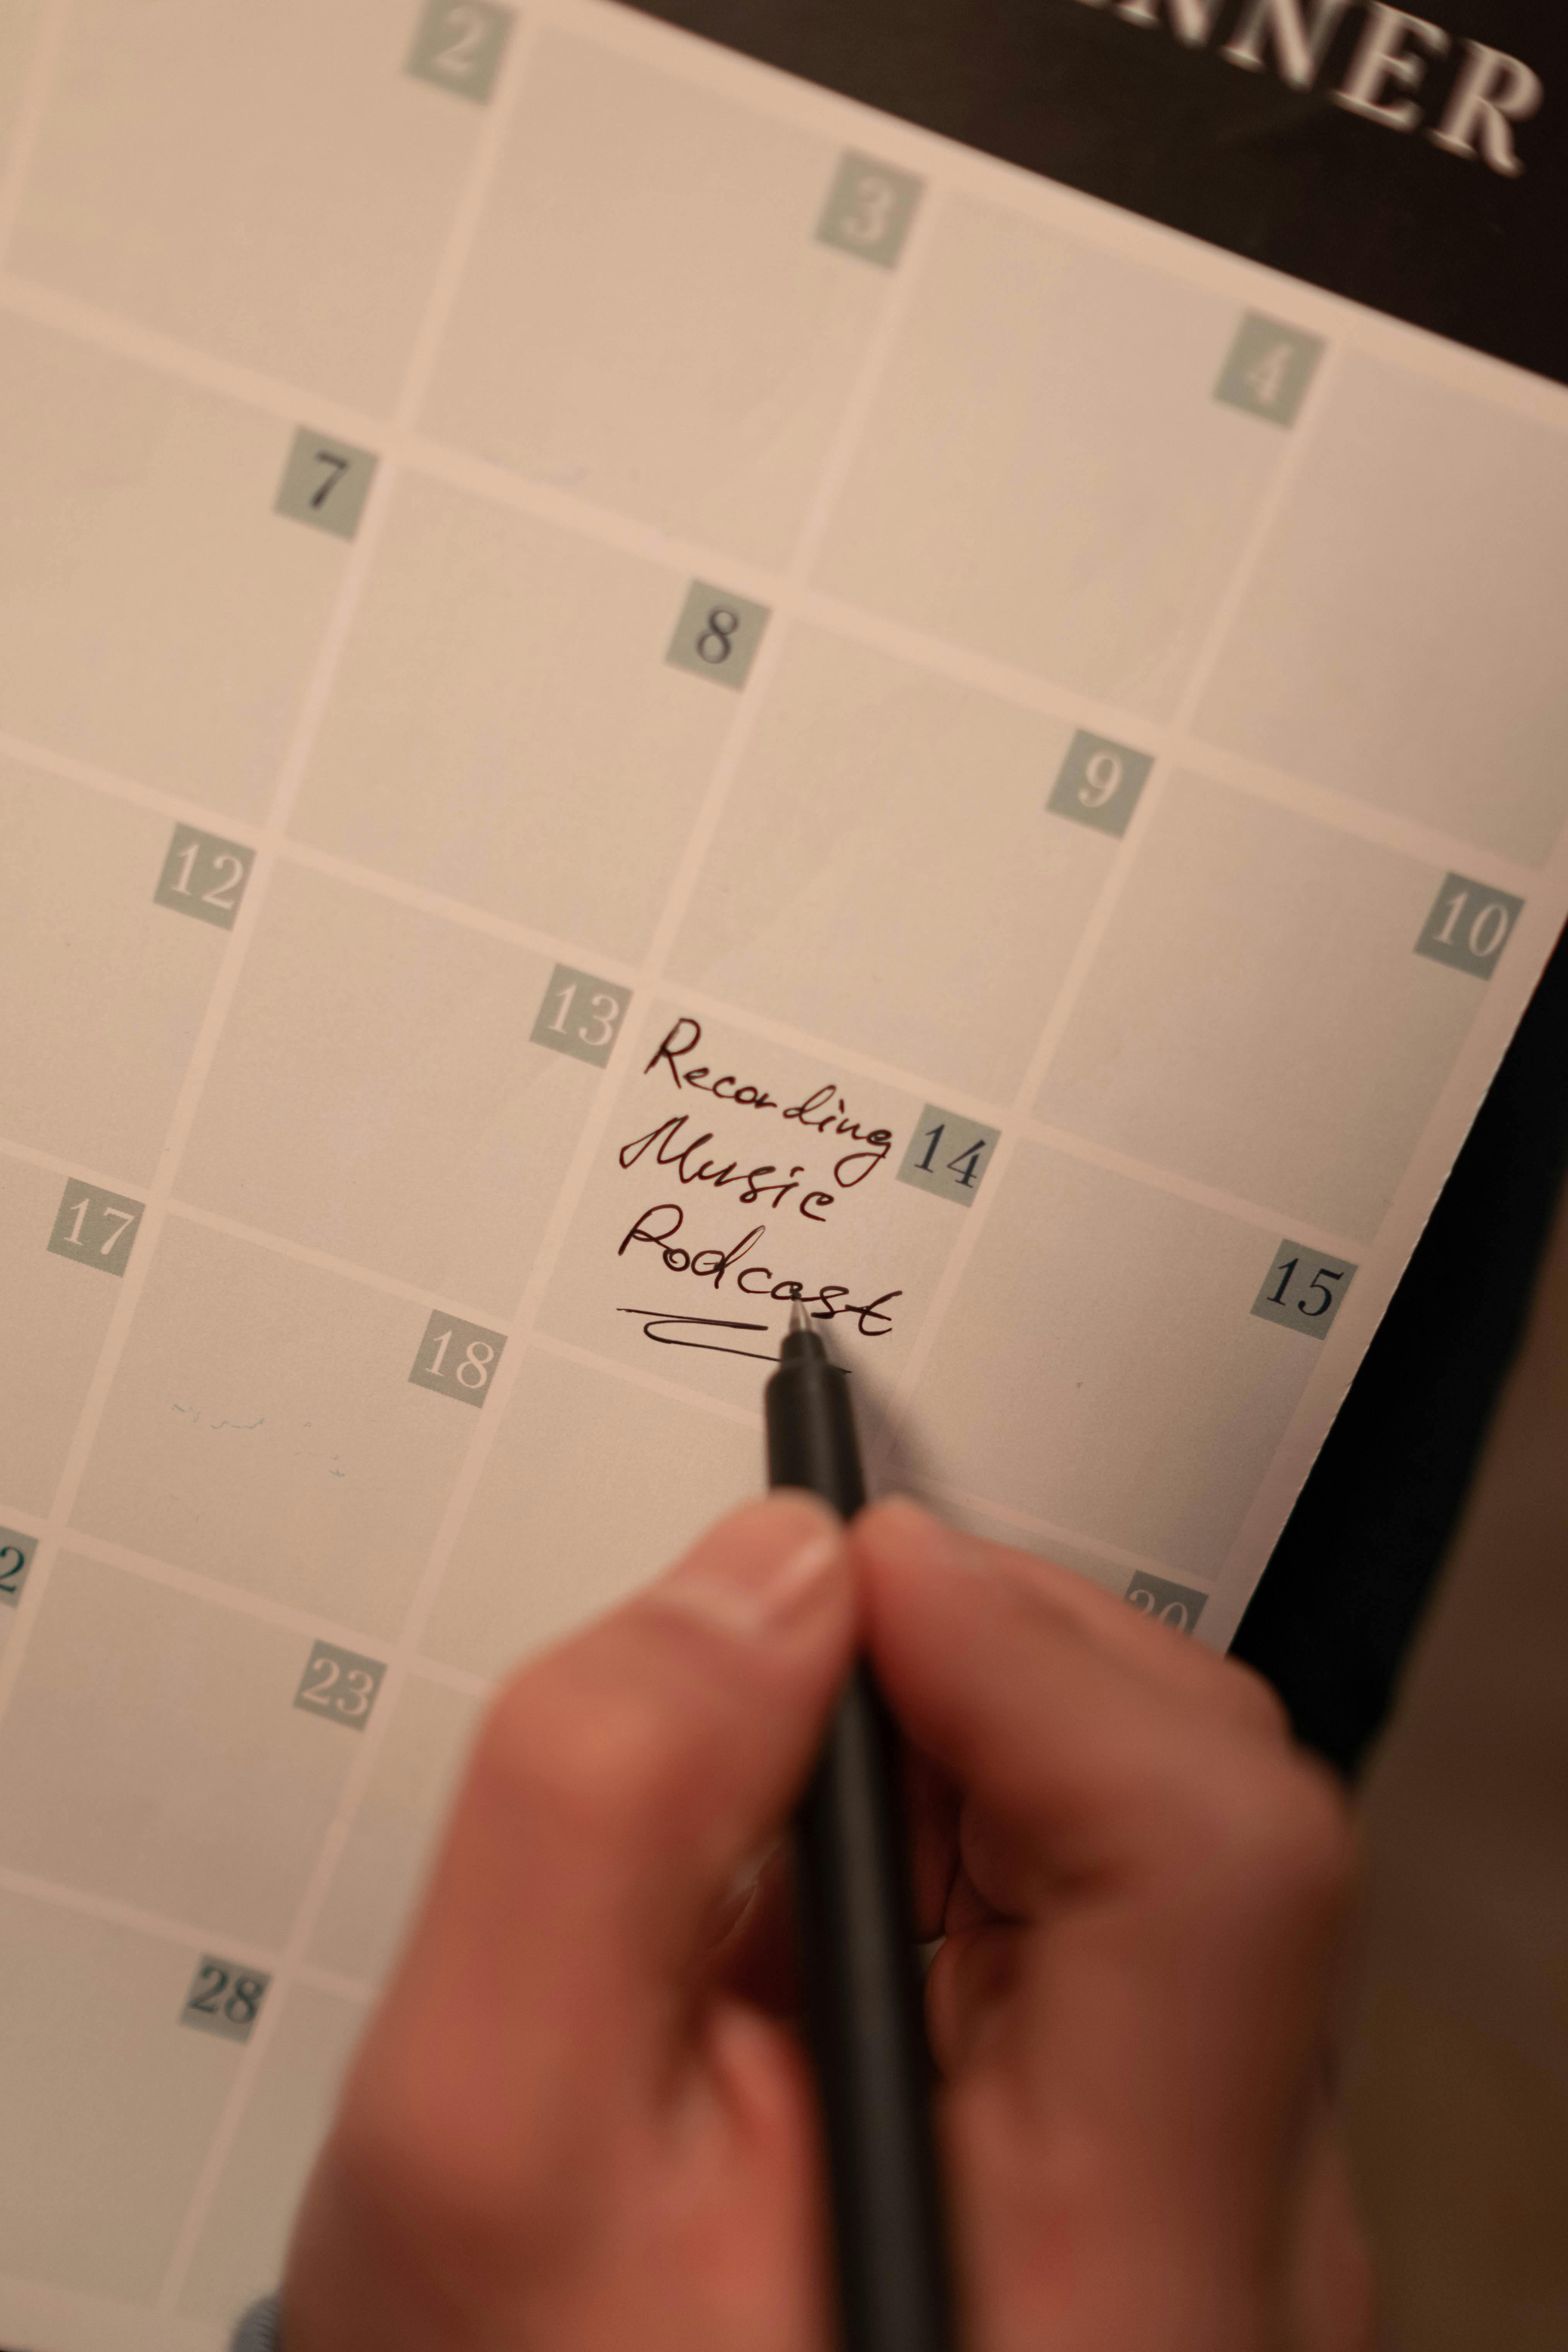 NNER
2
3
4
7
8
9
10
12
13
14
Recording
Music
Podcast
15
17
18
20
2
23
28